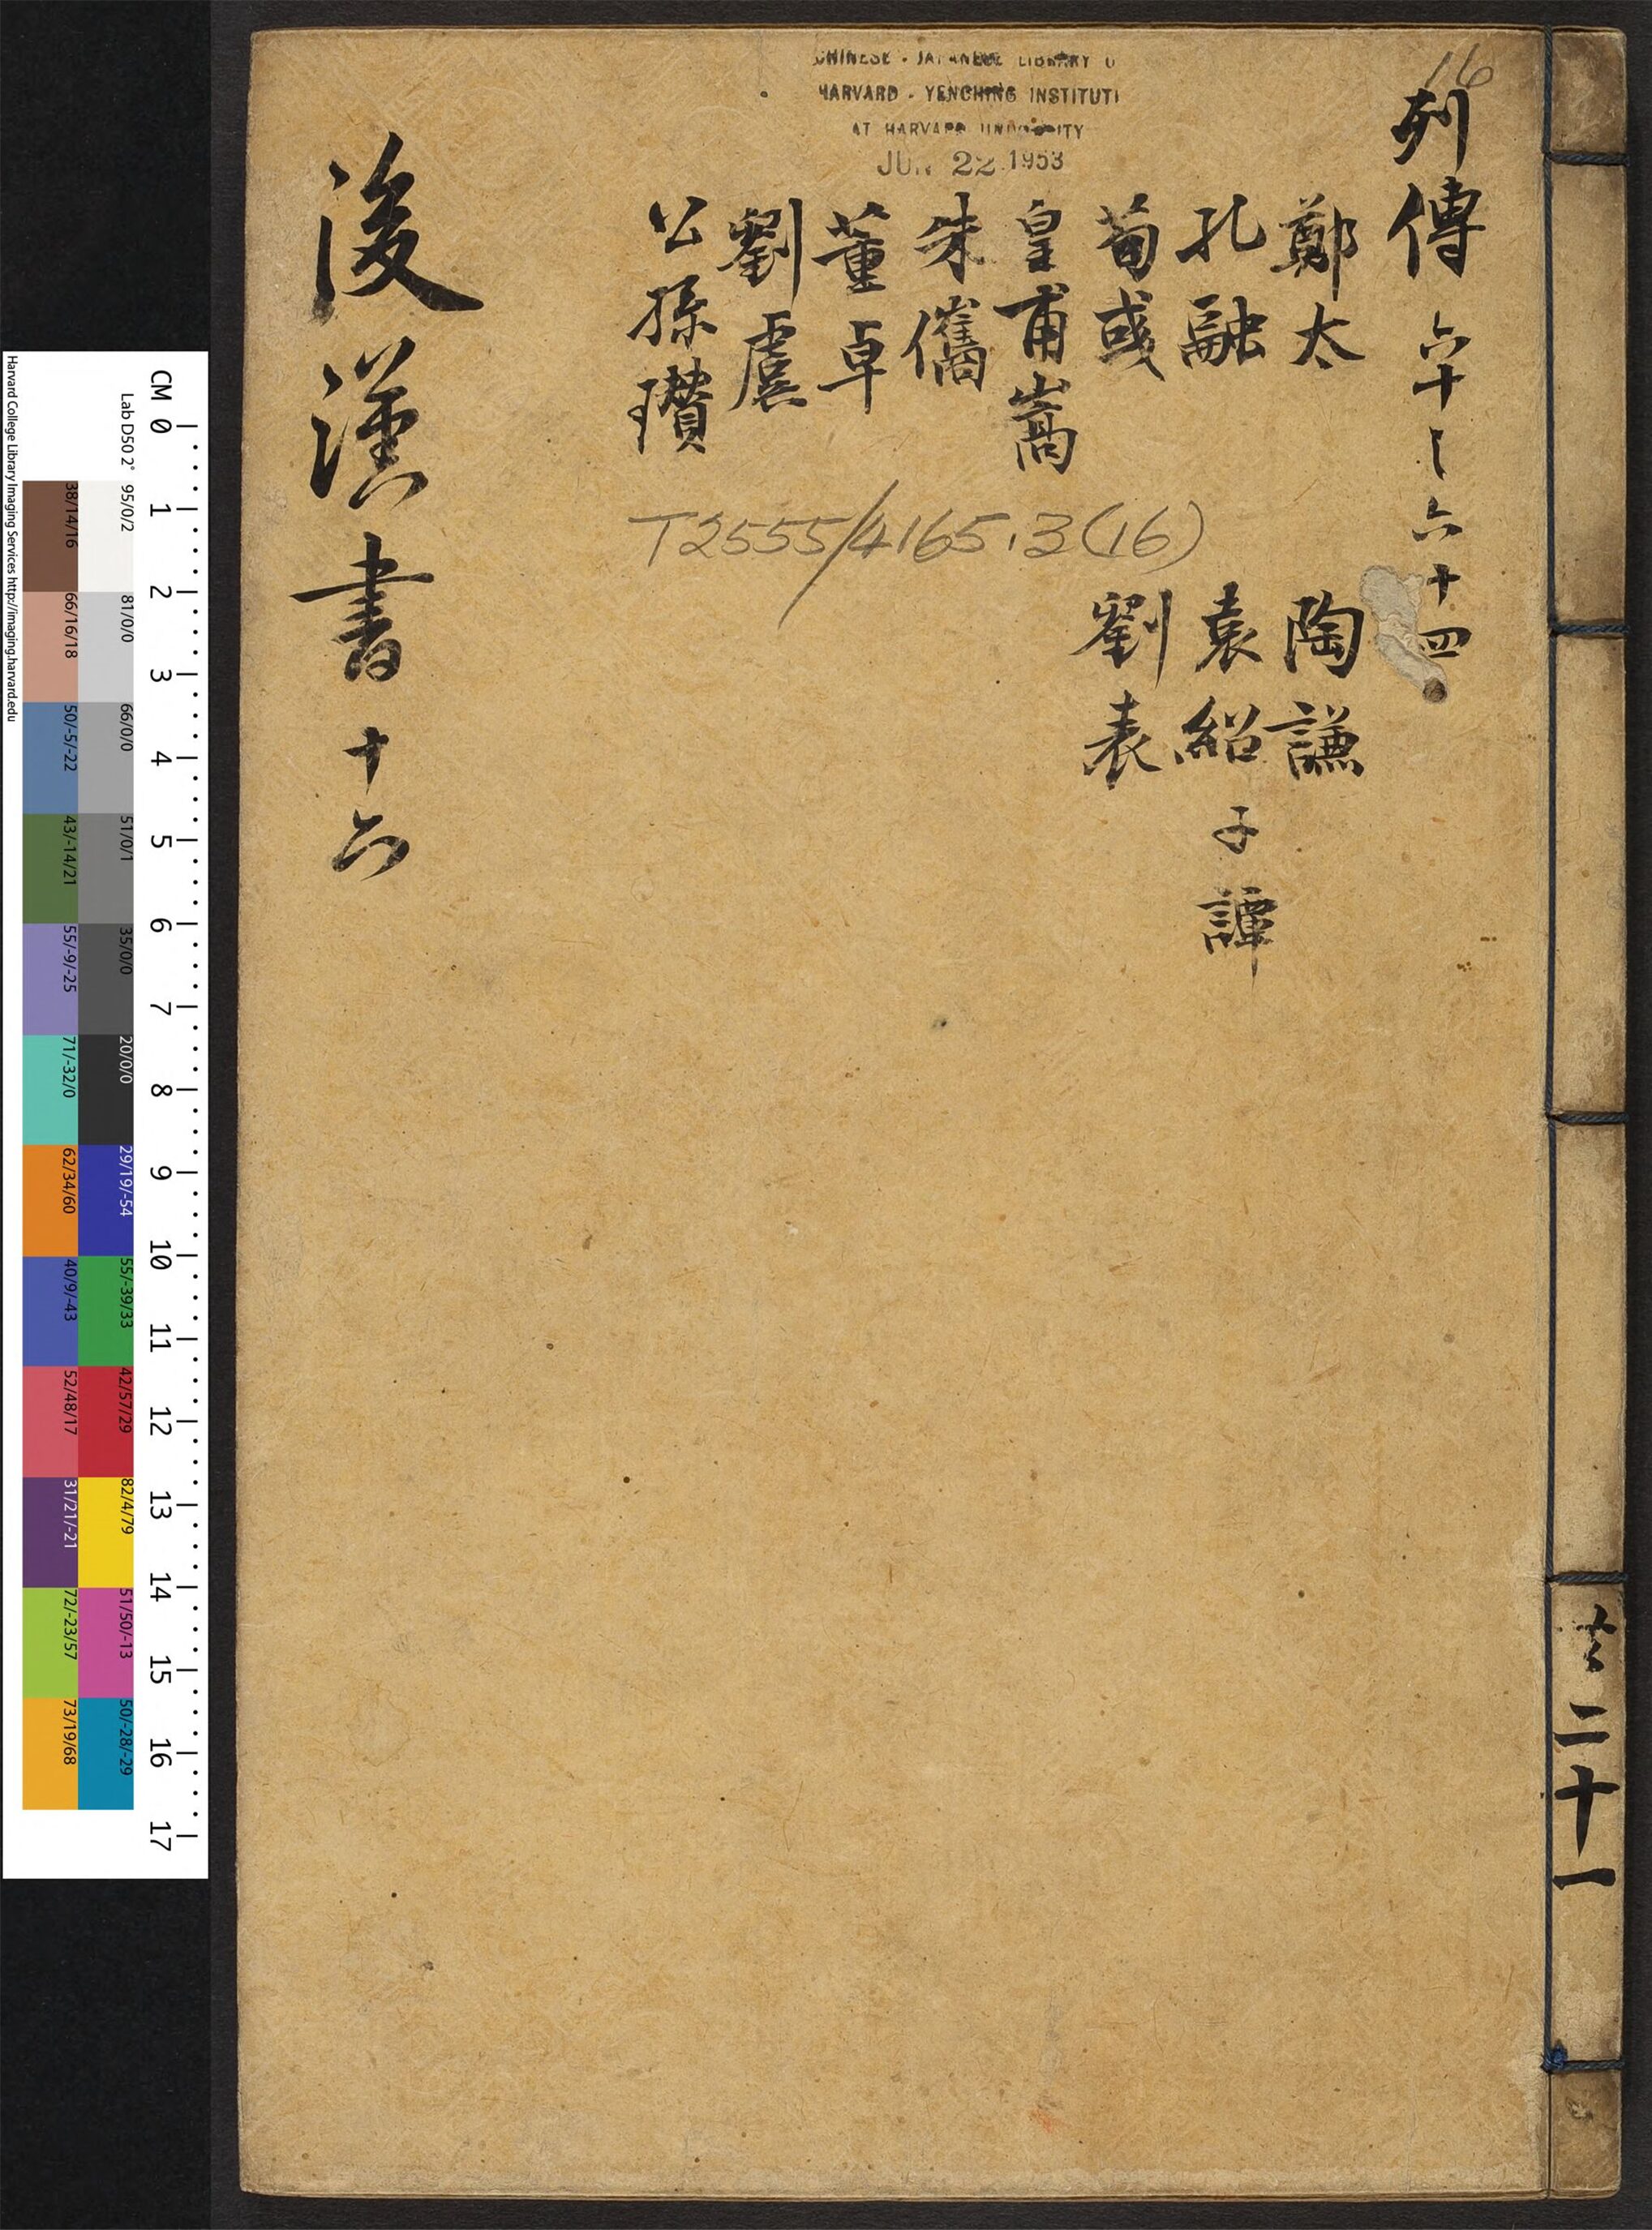 CHINESE - JAPANESE LIBRARY O
HARVARD - YENCHING INSTITUTI
AT HARVARD UNIVERSITY
JUN 22 1953
16
列傳 六十之六十四
鄭太
孔融
荀彧
皇甫嵩
朱儁
董卓
劉虞
公孫瓚
T2555/4165.3(16)
陶謙
袁紹 子譚
劉表
後漢書 十六
二十一
CM 0 1 2 3 4 5 6 7 8 9 10 11 12 13 14 15 16 17
Lab D50 2°
95/0/2
81/0/0
66/0/0
51/0/1
35/0/0
20/0/0
29/19/-54
55/-39/33
42/57/29
82/4/79
51/50/-13
50/-28/-29
38/14/16
66/16/18
50/-5/-22
43/-14/21
55/-9/-25
71/-32/0
62/34/60
40/9/-43
52/48/17
31/21/-21
72/-23/57
73/19/68
Harvard College Library Imaging Services http://imaging.harvard.edu